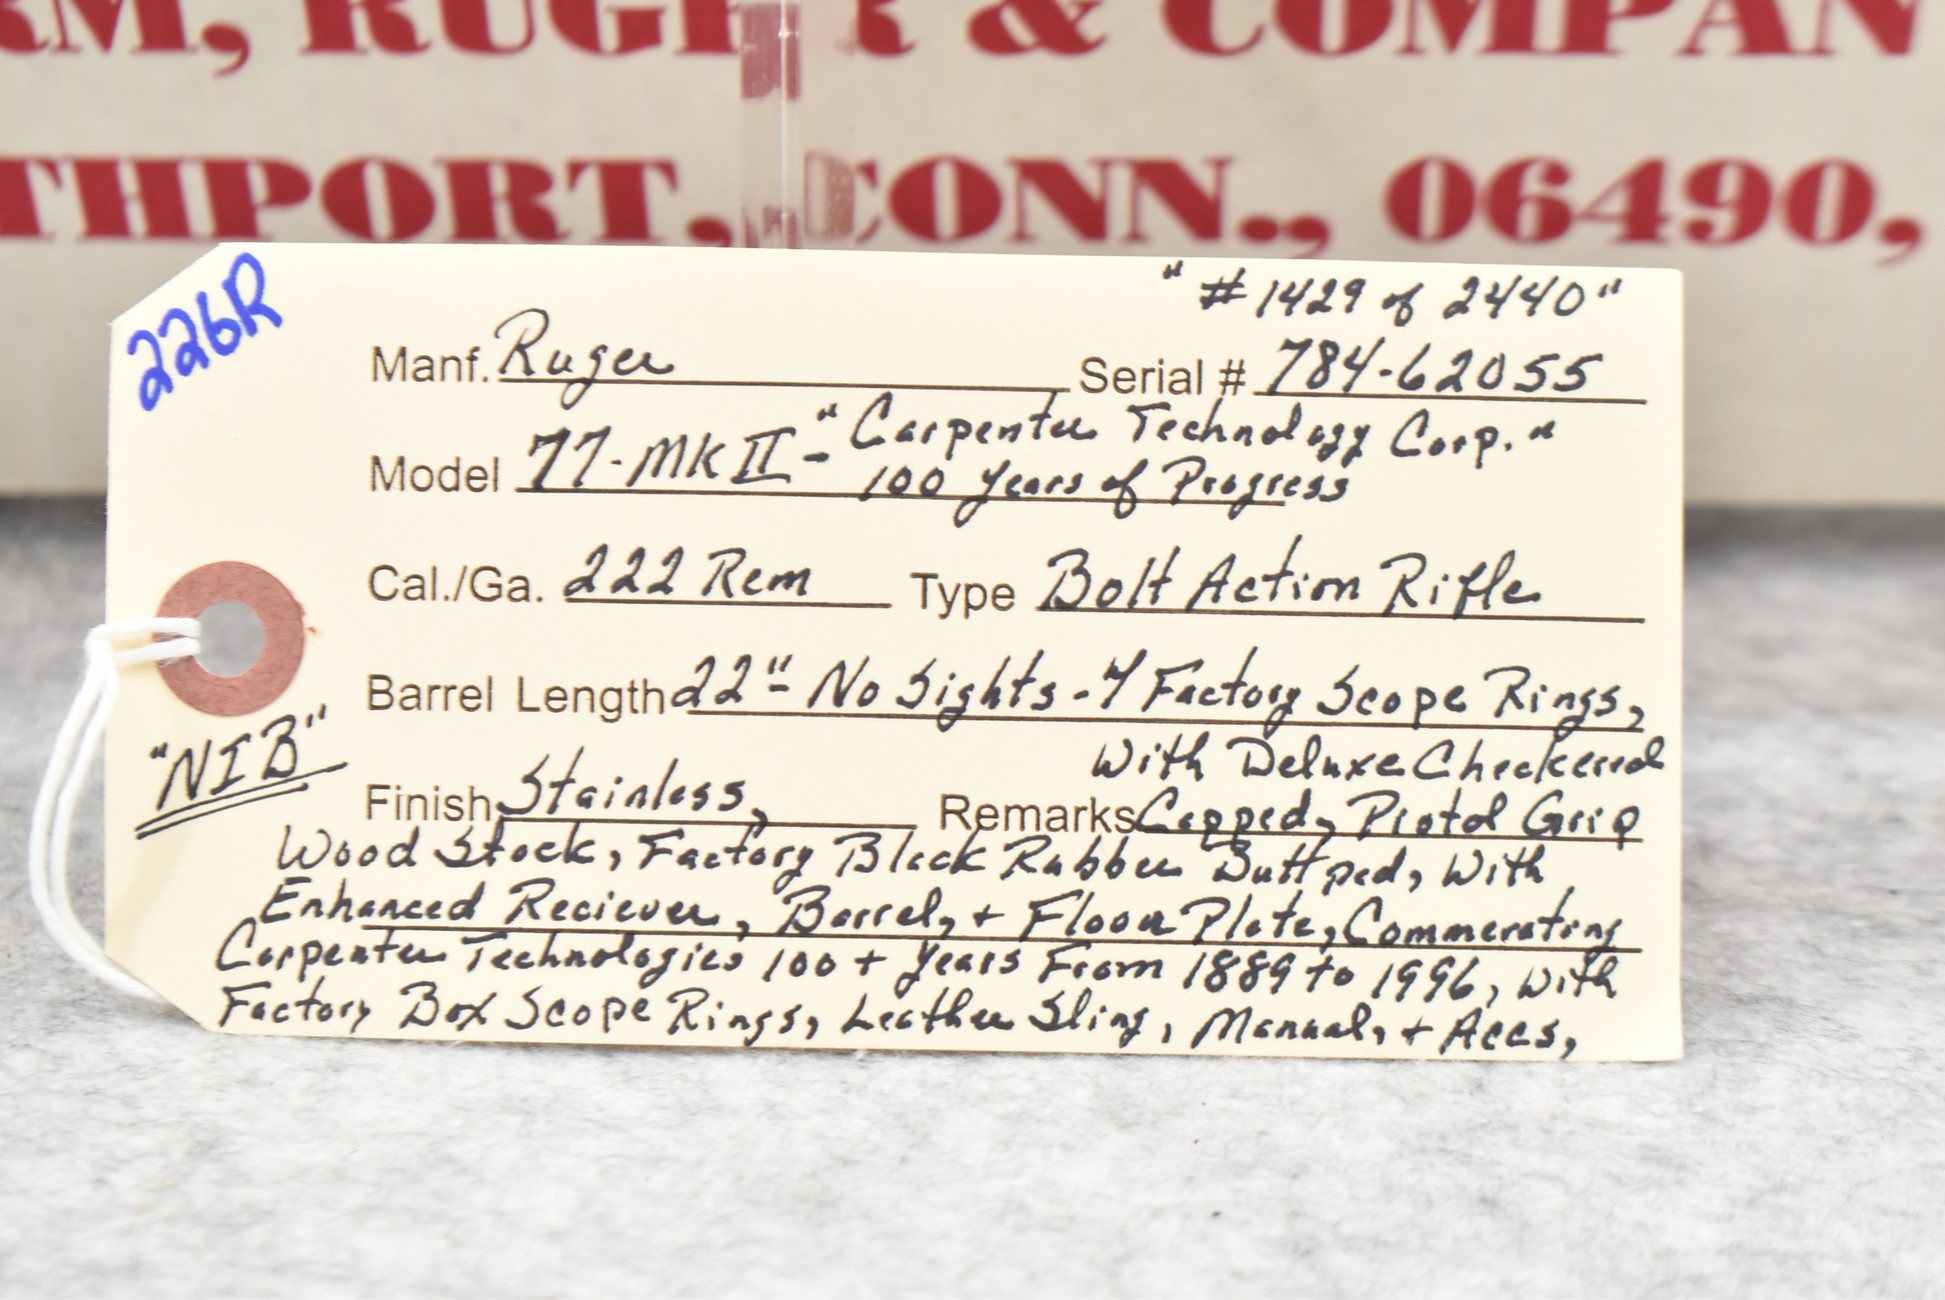 RM, RUGER & COMPAN
THPORT, CONN., 06490,
226R
"#1429 of 2440"
Manf. Ruger Serial # 784-62055
Model 77-MK II - "Carpenter Technology Corp."
100 Years of Progress
Cal./Ga. 222 Rem Type Bolt Action Rifle
Barrel Length 22" - No Sights - Y Factory Scope Rings,
With Deluxe Checkered
"NIB"
Finish Stainless, Remarks Capped, Pistol Grip
Wood Stock, Factory Black Rubber Buttpad, With
Enhanced Reciever, Barrel, + Floor Plate, Commerating
Carpenter Technologies 100 + Years From 1889 to 1996, With
Factory Box Scope Rings, Leather Sling, Manual, + Accs,